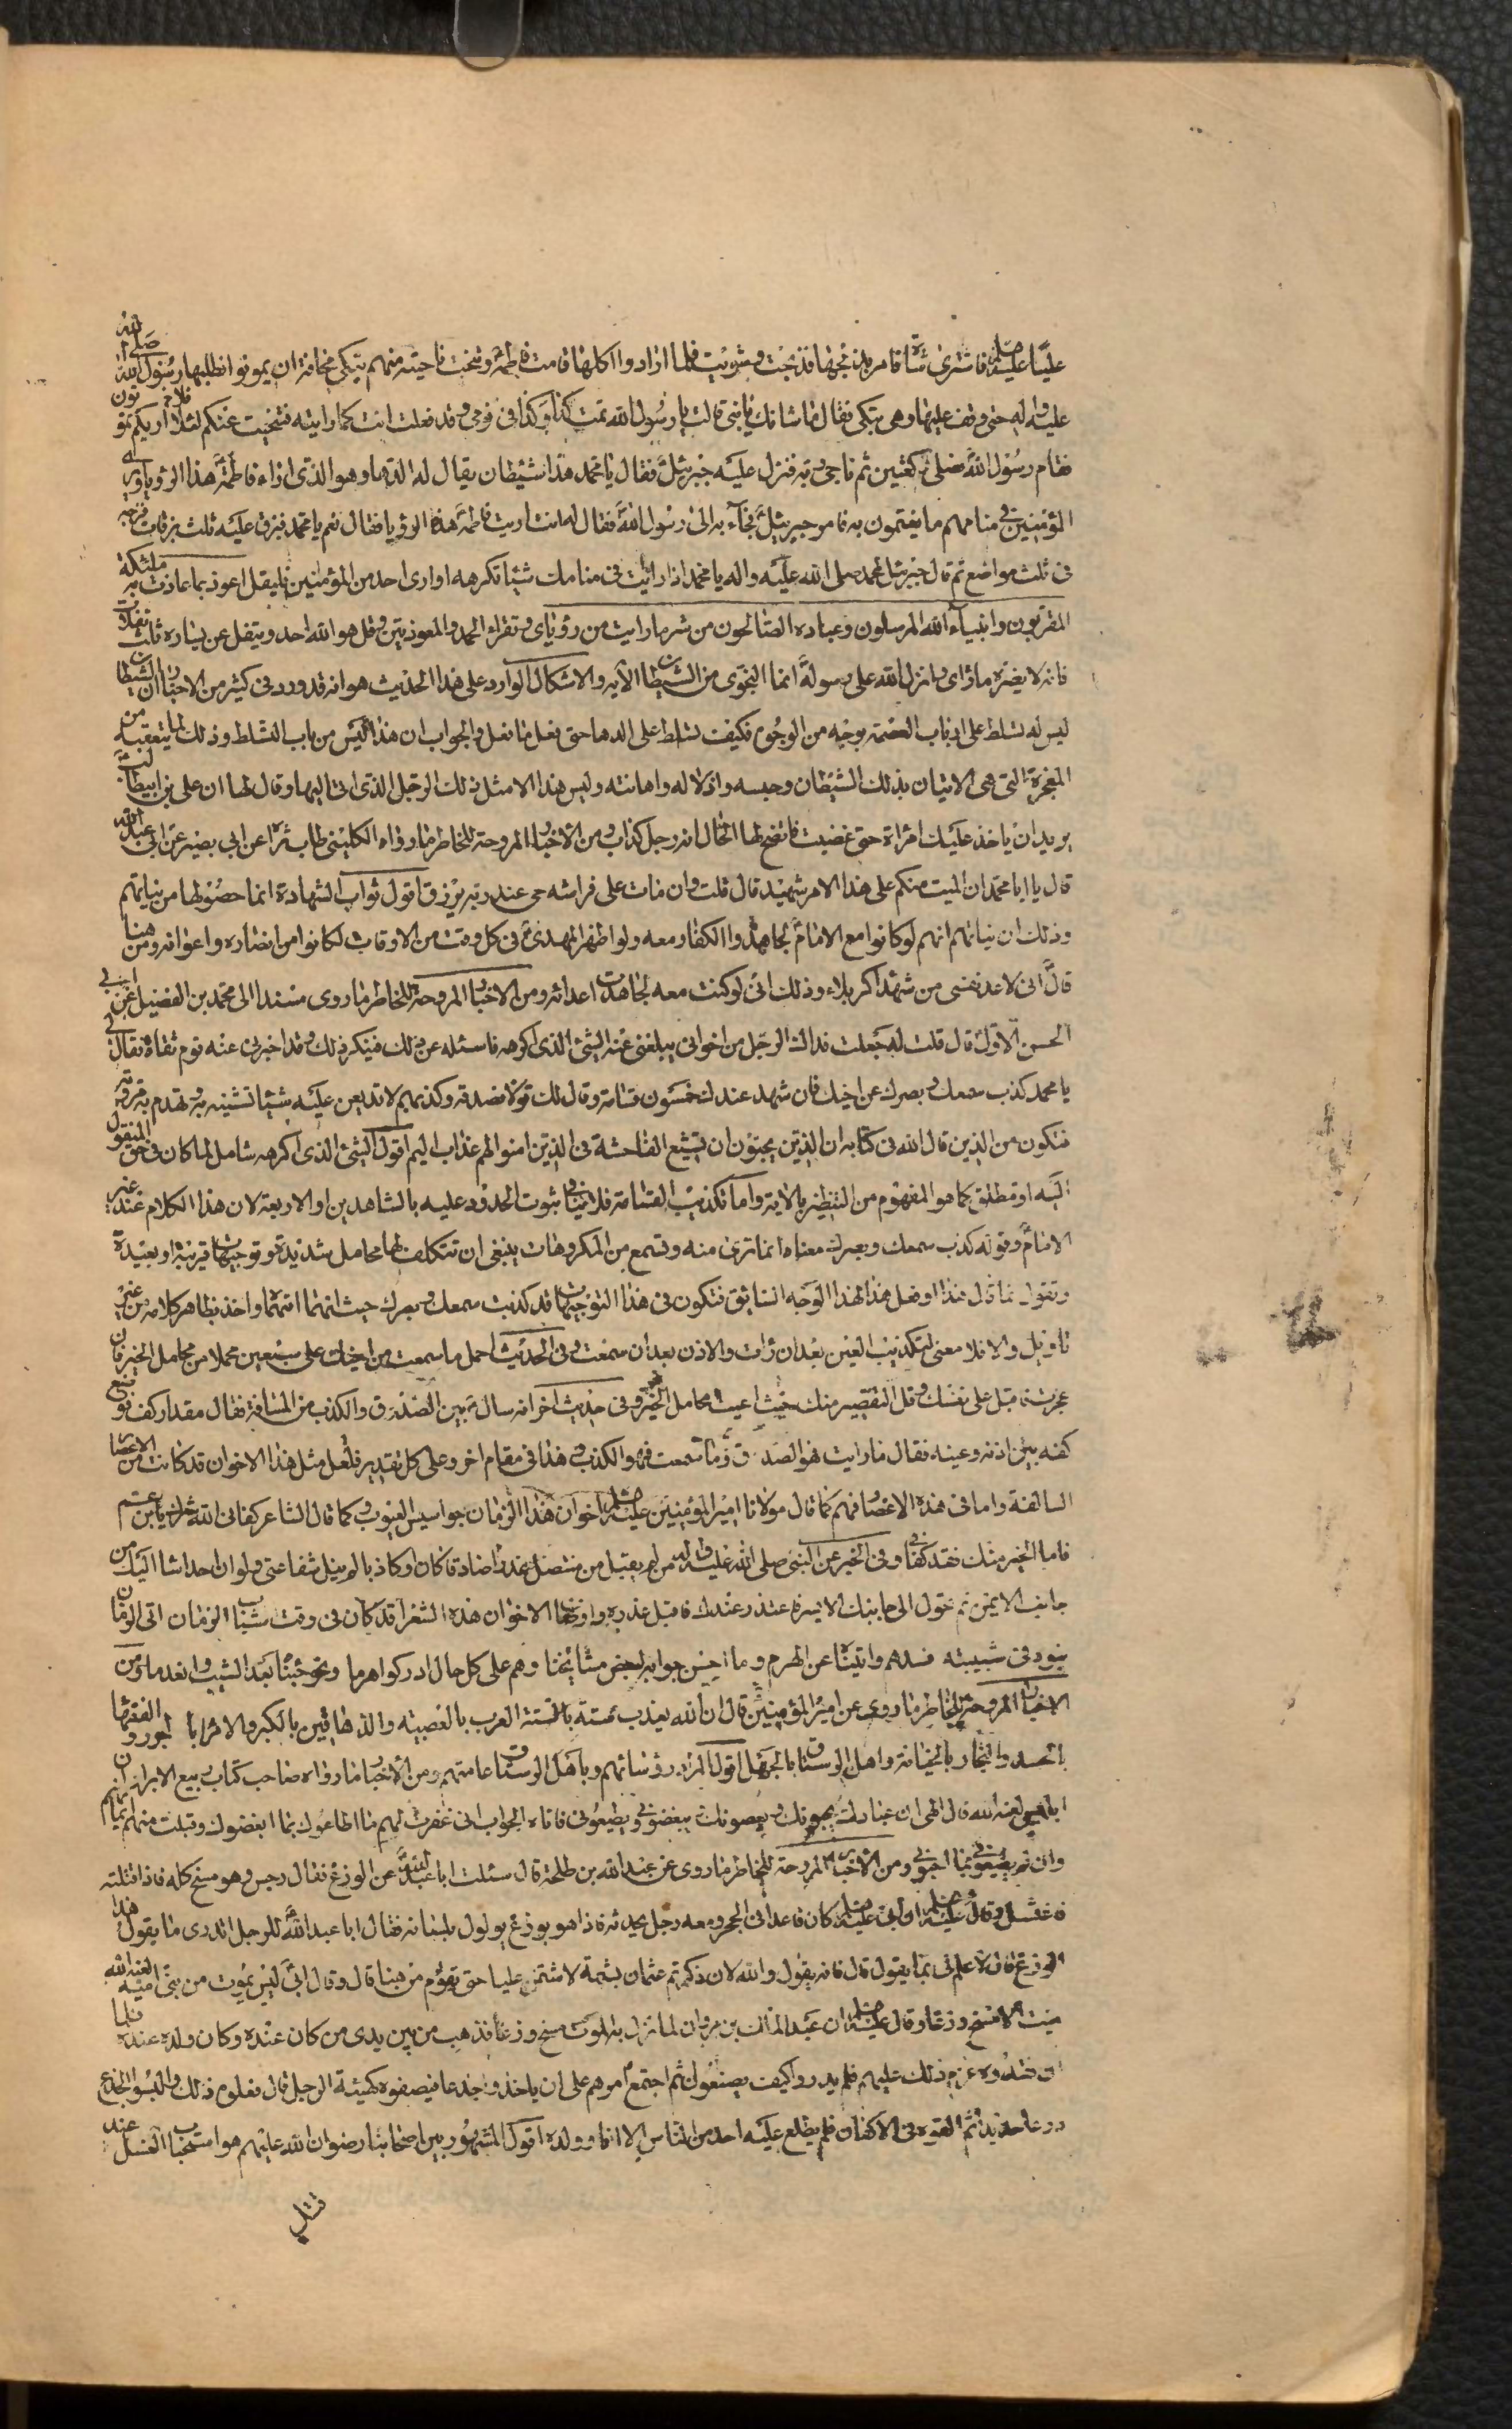 عليّا عليه صل فاشترى شاة فامر بذبحها فذبحت وشويت فلما ارادوا اكلها قامت فاطمة وتنحت ناحية منهم تبكى مخافة ان يموتوا فطلبها رسول الله صلى الله
عليه واله حتى وقف عليها وهى تبكى فقال ما شانك يا بنى قالت يا رسول الله نمت كذا وكذا فى نومى وقد فعلت انت كما رايته فتنحيت عنكم لئلا اريكم تموتون
فقام رسول الله فصلى ركعتين ثم ناجى ربه فنزل عليه جبرئيل فقال يا محمد هذا شيطان يقال له الدها وهو الذى اذاء فاطمة هذا الرؤيا وياذى
المؤمنين فى منامهم ما يغتمون به فامر جبرئيل فجآء به الى رسول الله فقال له انت اريت فاطمة هذه الرؤيا فقال نعم يا محمد فبزق عليه ثلث بزقات فشجه
فى ثلث مواضع ثم قال جبرئيل لمحمد صلى الله عليه واله يا محمد اذا رايت فى منامك شيئا تكرهه او اراى احد من المؤمنين فليقل اعوذ بما عاذت به ملئكة
المقربون وانبياء الله المرسلون وعباده الصالحون من شر ما رايت من رؤياى وتقراء الحمد والمعوذتين وقل هو الله احد ويتفل عن يساره ثلث تفلات
فانه لا يضره ماراى وانزل الله على رسوله انما النجوى من الشيطان الآيه والاشكال الوارد على هذا الحديث هو انه قد ورد فى كثير من الاخبار ان الشيطان
ليس له تسلط على ارباب العصمة بوجه من الوجوه فكيف تسلط على الدها حتى فعل ما فعل والجواب ان هذا ليس من باب التسلط وذلك لما يتعقبه من
المعجزة التى هى الاتيان بذلك الشيطان وحبسه واذلاله واهانته وليس هذا الا مثل ذلك الرجل الذى اتى اليها وقال لها ان على بن ابيطالب
يريد ان ياخذ عليك امراة حتى غضبت فاتضح لها الحال انه رجل كذاب ومن الاخبار المروحة للخاطر ما رواه الكلينى طاب ثراه عن ابى بصير عن ابى عبدالله
قال يا ابا محمد ان الميت منكم على هذا الامر شهيد قال قلت وان مات على فراشه حى عند ربه يرزق اقول ثواب الشهادة انما حصوله من نياتهم
وذلك ان نياتهم انهم لو كانوا مع الامام لجاهدوا الكفار معه ولو اظهر المهدى فى كل وقت من الاوقات لكانوا من انصاره واعوانه ومن هنا
قال انى لاعد نفسى من شهداء كربلاء وذلك انى لو كنت معه لجاهدت اعدائه ومن الاخبار المروحة للخاطر ما روى مسندا الى محمد بن الفضيل عن ابى
الحسن الاول قال قلت له جعلت فداك الرجل من اخوانى يبلغنى عنه الشئ الذى اكرهه فاسئله عن ذلك فينكر ذلك وقد اخبرنى عنه قوم ثقاة فقال لى
يا محمد كذب سمعك وبصرك عن اخيك فان شهد عندك خمسون قسامة وقال لك قولا فصدقه وكذبهم لا تذيعن عليه شيئا تشينه به وتهدم به مروته
فتكون من الذين قال الله فى كتابه ان الذين يحبون ان تشيع الفاحشة فى الذين امنوا لهم عذاب اليم اقول الشئ الذى اكرهه شامل لما كان فى حق المنقول
اليه او مطلق كما هو المفهوم من التنظير بالاية واما تكذيب القسامة فلا ينافى ثبوت الحدود عليه بالشاهدين او الاربعة لان هذا الكلام عند غير
الامام وقوله كذب سمعك وبصرك معناه انما ترى منه وتسمع من المكروهات ينبغى ان تتكلف لها محامل شديدة وتوجيهات قريبة او بعيدة
وتقول ما قال هذا او فعل هذا لهذا الوجه السابق فتكون فى هذا التوجيهات قد كذبت سمعك وبصرك حيث انهما اتهما واخذ بظاهر كلامه من غير
تاويل والا فلا معنى لتكذيب العين بعد ان رات والاذن بعد ان سمعت وفى الحديث احمل ما سمعت من اخيك على سبعين محملا من محامل الخير فان
عجزت فاقبل على نفسك وقل التقصير منك حيث اعيت محامل الخير وفى حديث اخر انه سال بين الصدق والكذب من المسافة فقال مقدار كف فوضع
كفه بين اذنه وعينه فقال ما رايت فهو الصدق وما سمعت فهو الكذب وهذا فى مقام اخر وعلى كل تقدير فلعل مثل هذا الاخوان قد كانت من الاعصار
السالفة واما فى هذه الاعصار فهم كما قال مولانا امير المؤمنين عليه صل اخوان هذا الزمان جواسيس العيوب كما قال الشاعر كفانى الله شرك يابن عم
فاما الخير منك فقد كفانى وفى الخبر عن النبى صلى الله عليه واله من لم يقبل من متنصل عذرا صادقا كان او كاذبا لم ينل شفاعتى ولو ان احدا شا اليك من
جانب الايمن ثم تحول الى جانبك الايسر فاعتذر عندك فاقبل عذره واوصاف الاخوان هذه الشعراء قد كان فى وقت شباب الزمان اتى الزمان
بنوه فى شبيبته فسرهم واتيناه عن الهرم وما احسن جوابه لبعض مشايخنا وهم على كل حال ادركوا هرما ونحن جئناه بعد الشيب وبعد ما ومن
الاخبار المروحة للخاطر ما روى عن امير المؤمنين قال ان الله يعذب ستة بالستة العرب بالعصبية والدهاقين بالكبر والامراء بالجور والفقهاء
بالحسد والتجار بالخيانة واهل الرستاق بالجهل اقول المراد رؤسائهم وباهل الرستاق عامتهم ومن الاخبار ما رواه صاحب كتاب ربيع الابرار ان
ابليس لعنه الله قال الهى ان عبادك يحبونك ويعصونك ويبغضونى ويطيعونى فاتاه الجواب انى غفرت لهم ما اطاعوك بما ابغضوك وقبلت منهم ايمانهم
وان لم يطيعونى بما احبونى ومن الاخبار المروحة للخاطر ما روى عن عبد الله بن طلحة قال سئلت ابا عبد الله عن الوزغ فقال رجس وهو مسخ كله فاذا قتلته
فاغتسل وقال عليه صل ان ابى عليه صل كان قاعدا فى الحجر ومعه رجل يحدثه فاذا هو بوزغ يولول بلسانه فقال ابا عبد الله للرجل اتدرى ما يقول هذا
الوزغ قال لا علم لى بما يقول قال فانه يقول والله لان ذكرتم عثمان بشتمة لاشتمن عليا حتى تقوم من هنا قال وقال ابى ليس يموت من بنى امية لعنه الله
ميت الا مسخ وزغا وقال عليه صل ان عبد الملك بن مروان لما نزل به الموت مسخ وزغا فذهب من بين يدى من كان عنده وكان ولده عنده فلما
ان فقدوه عزم ذلك عليهم فلم يدروا كيف يصنعون ثم اجتمع امرهم على ان ياخذوا جذعا فيصفوه كهيئة الرجل قال ففعلوا ذلك والبسوا الجذع
درعا حديد ثم القوه فى الاكفان فلم يطلع عليه احد من الناس الا انا وولده اقول المشهور بين اصحابنا رضوان الله عليهم هو استحباب الغسل عند
قتله